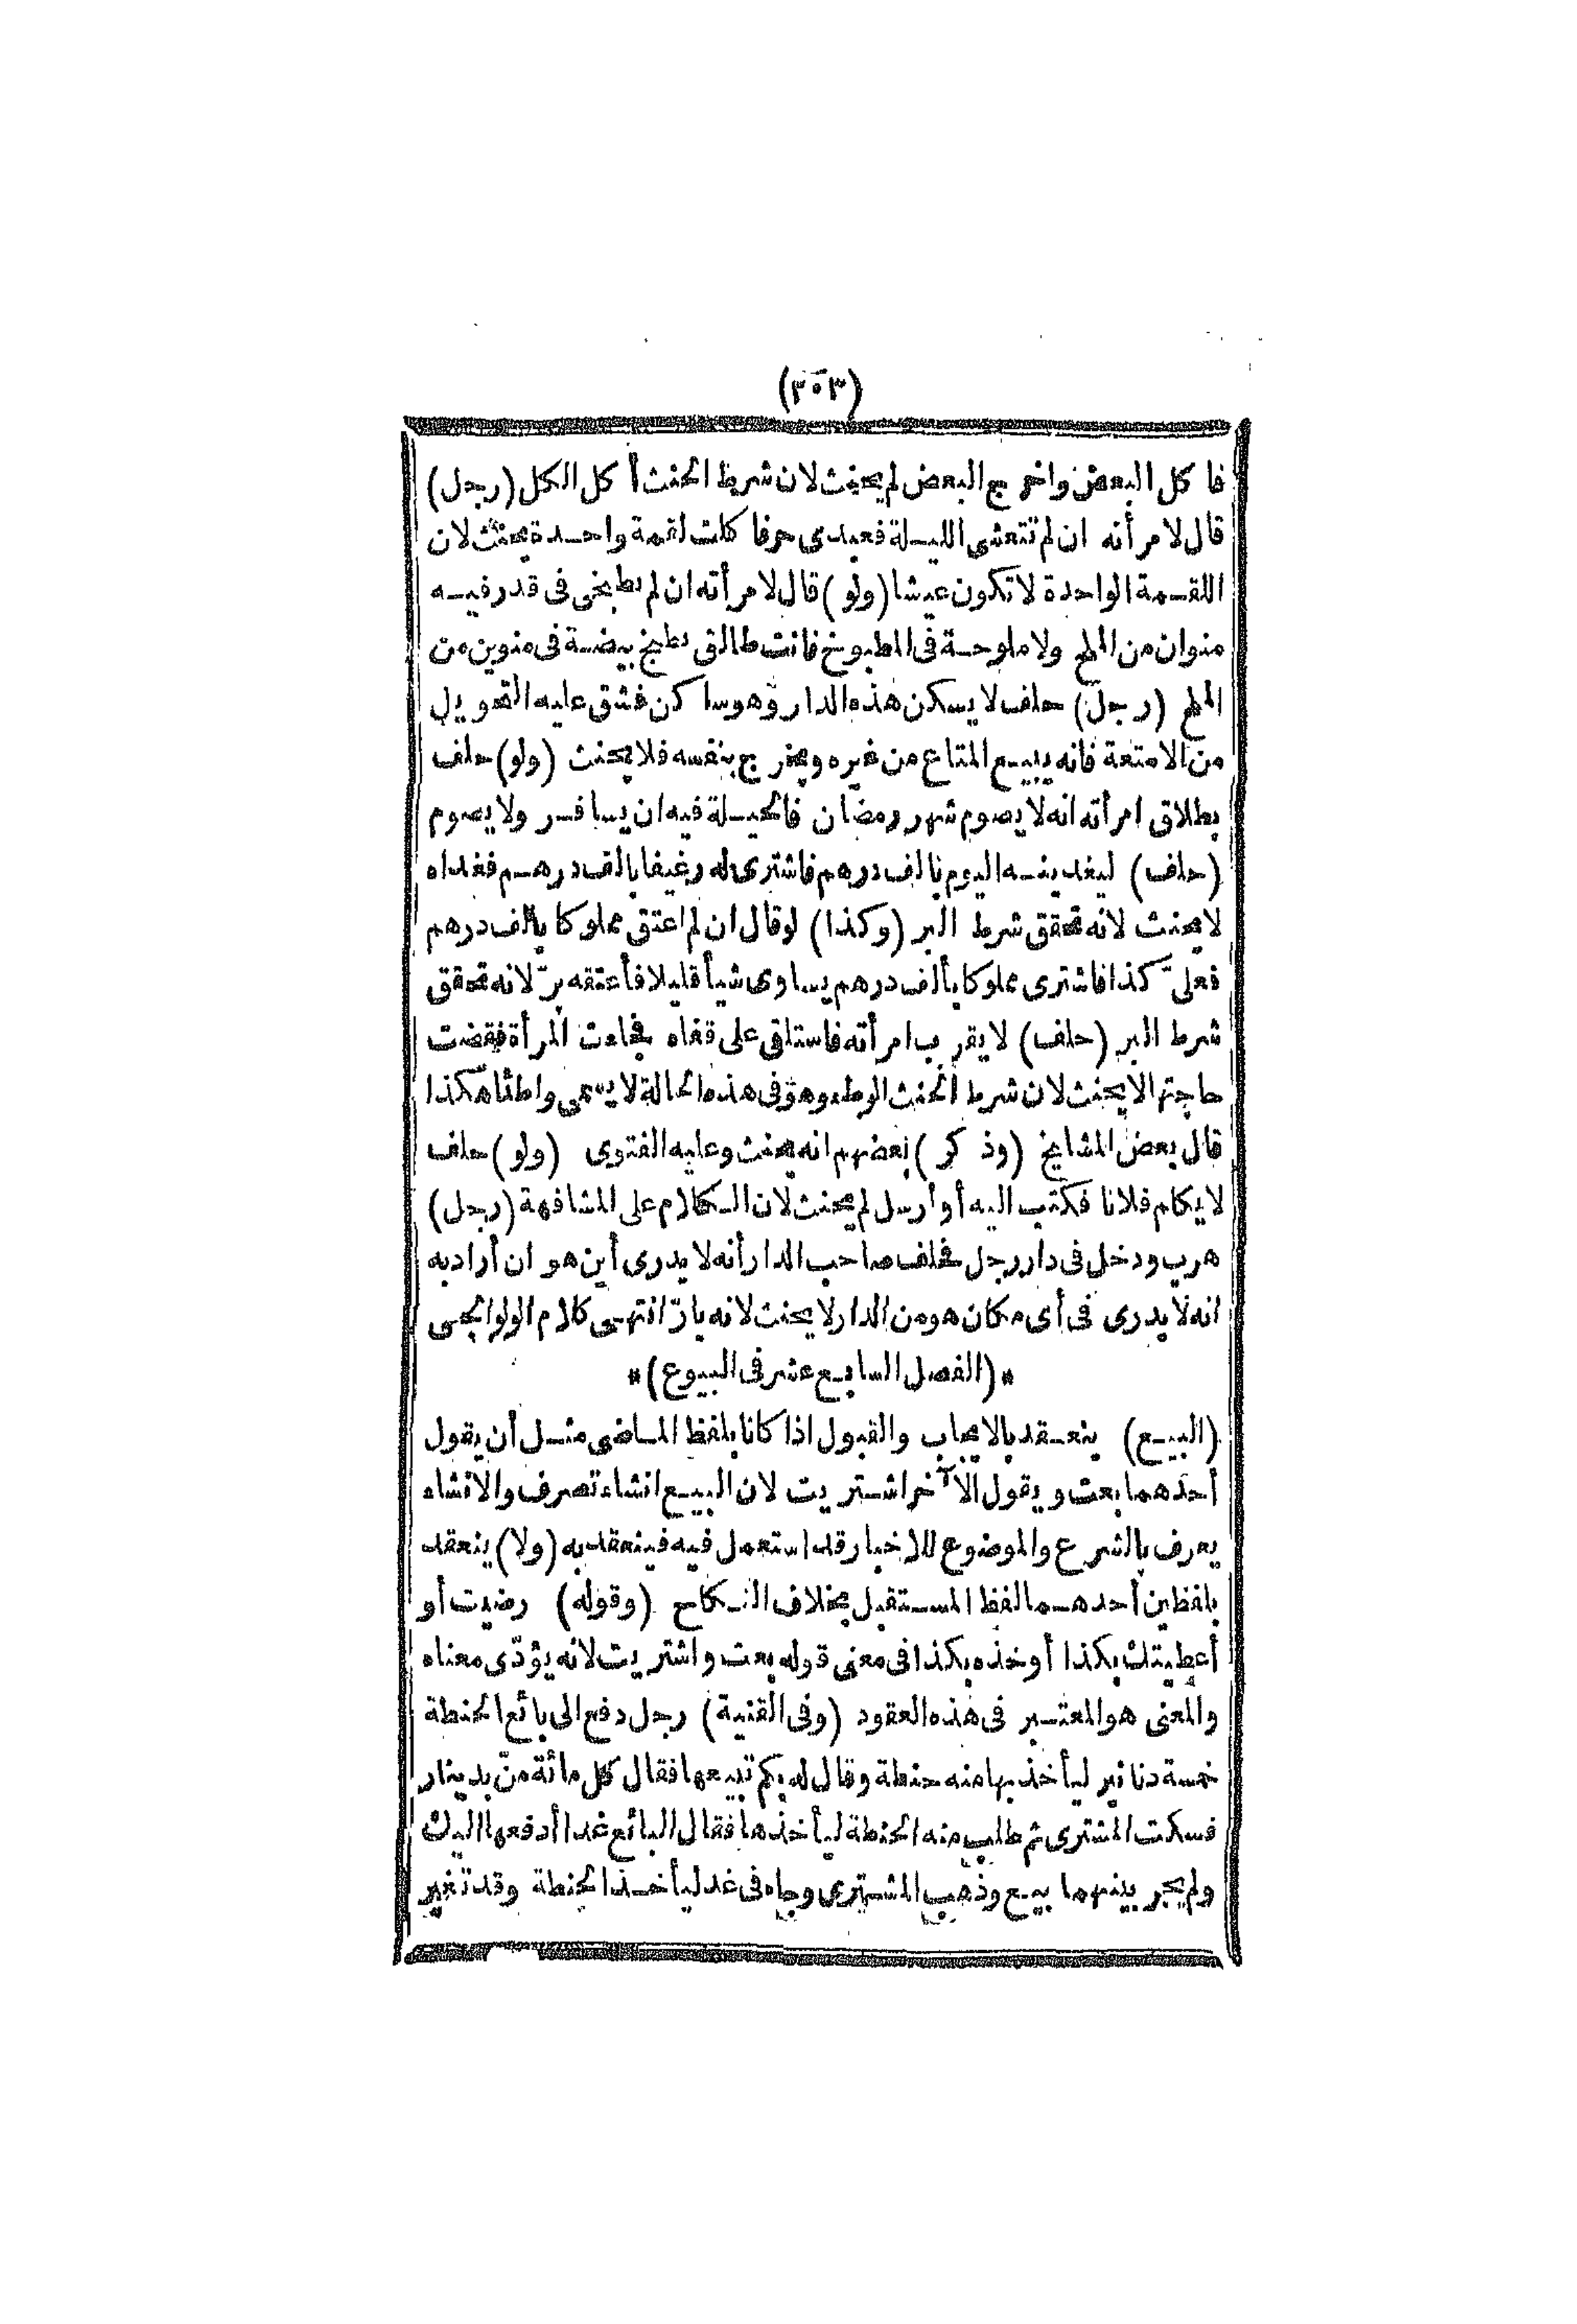 (٣٠٣)
فا كل البعض واخرج البعض لم يحنث لان شرط الحنث أ كل الكل (رجل)
قال لامرأته ان لم تتعشى الليلة فعبدى حر فا كلت لقمة واحدة يحنث لان
اللقمة الواحدة لا تكون عيشا (ولو) قال لامرأته ان لم تطبخى فى قدر فيه
منوان من الملح ولا ملوحة فى المطبوخ فانت طالق تطبخ بيضة فى منوين من
الملح (رجل) حلف لا يسكن هذه الدار وهو ساكن فشق عليه التحويل
من الامتعة فانه يبيع المتاع من غيره ويخرج بنفسه فلا يحنث (ولو) حلف
بطلاق امرأته انه لا يصوم شهر رمضان فالحيلة فيه ان يسافر ولا يصوم
(حلف) ليغدينه اليوم بالف درهم فاشترى له رغيفا بالف درهم فغداه
لا يحنث لانه تحقق شرط البر (وكذا) لو قال ان لم اعتق مملوكا بالف درهم
فعلىّ كذا فاشترى مملوكا بألف درهم يساوى شيأ قليلا فأعتقه برّ لانه تحقق
شرط البر (حلف) لا يقرب امرأته فاستلقى على قفاه فجاءت المرأة فقضت
حاجتها لا يحنث لان شرط الحنث الوطء وهو فى هذه الحالة لا يسمى واطئا هكذا
قال بعض المشايخ (وذكر) بعضهم انه يحنث وعليه الفتوى (ولو) حلف
لا يكلم فلانا فكتب اليه أو أرسل لم يحنث لان الكلام على المشافهة (رجل)
هرب ودخل فى دار رجل فحلف صاحب الدار أنه لا يدرى أين هو ان أراد به
انه لا يدرى فى أى مكان هو من الدار لا يحنث لانه بارّ انتهى كلام الولوالجى
*(الفصل السابع عشر فى البيوع)*
(البيع) ينعقد بالايجاب والقبول اذا كانا بلفظ الماضى مثل أن يقول
أحدهما بعت ويقول الآخر اشتريت لان البيع انشاء تصرف والانشاء
يعرف بالشرع والموضوع للاخبار قد استعمل فيه فينعقد به (ولا) ينعقد
بلفظين أحدهما لفظ المستقبل بخلاف النكاح (وقوله) رضيت أو
أعطيتك بكذا أو خذه بكذا فى معنى قوله بعت واشتريت لانه يؤدّى معناه
والمعنى هو المعتبر فى هذه العقود (وفى القنية) رجل دفع الى بائع الحنطة
خمسة دنانير ليأخذ بها منه حنطة وقال له بكم تبيعها فقال كل مائة منّ بدينار
فسكت المشترى ثم طلب منه الحنطة ليأخذها فقال البائع غدا أدفعها اليك
ولم يجر بينهما بيع وذهب المشترى وجاء فى غد ليأخذ الحنطة وقد تغير